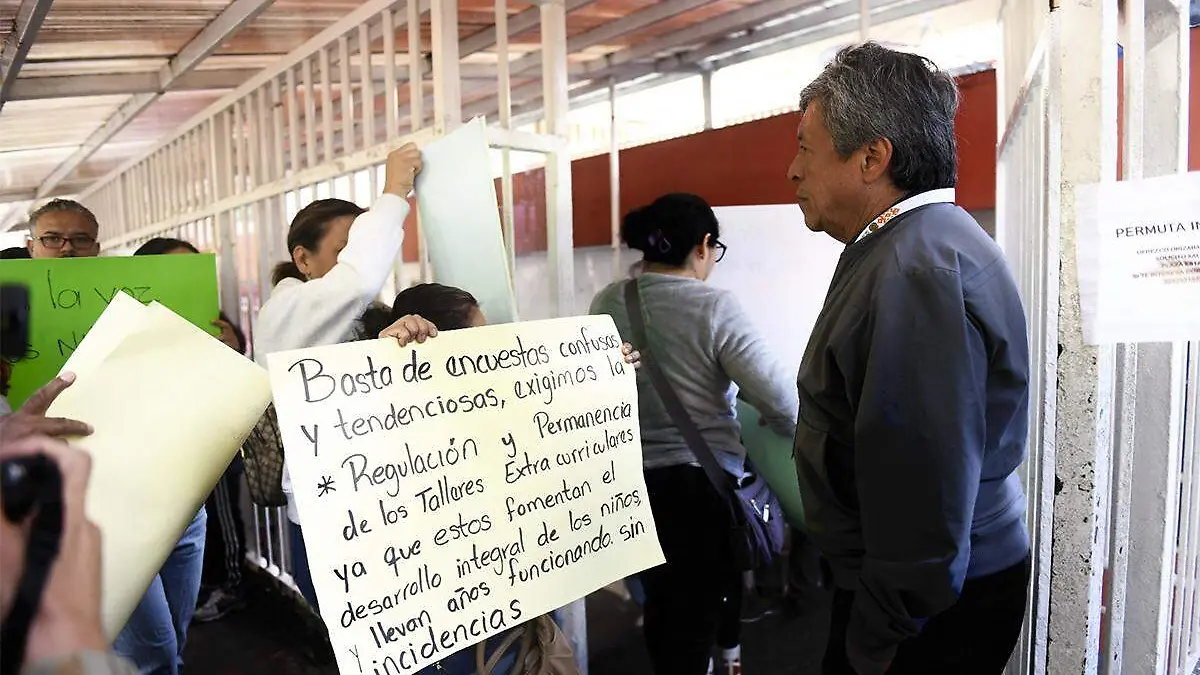 la voz
Basta de encuestas confusas
y tendenciosas, exigimos la
* Regulación y Permanencia
de los Talleres Extra curriculares
ya que estos fomentan el
desarrollo integral de los niños,
y llevan años funcionando sin
incidencias
PERMUTA